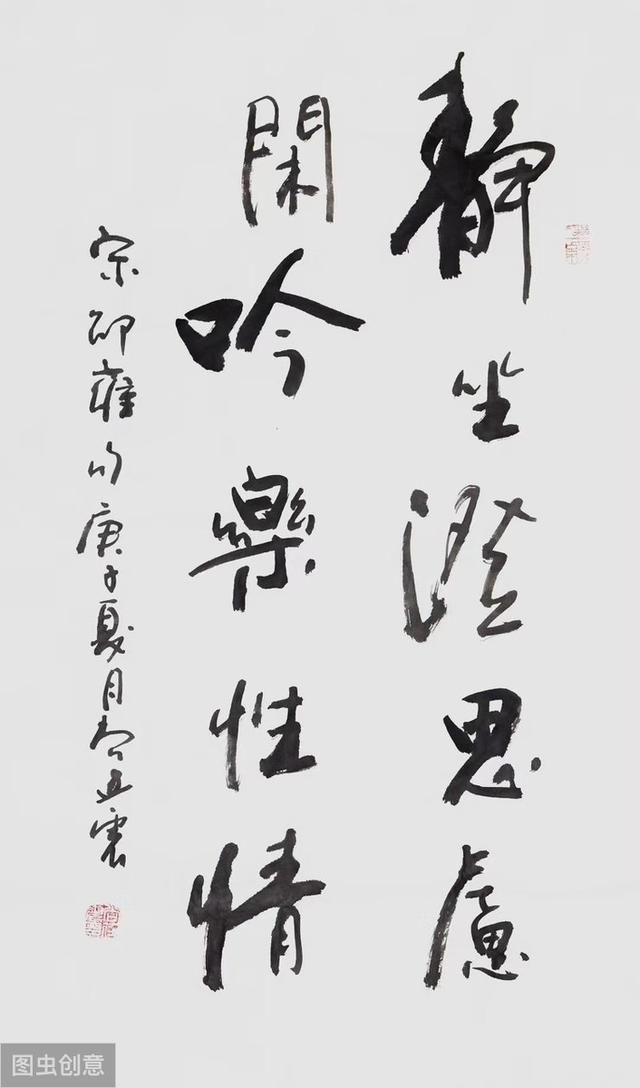 靜坐澄思慮
閑吟樂性情
宋邵雍句庚子夏月
图虫创意